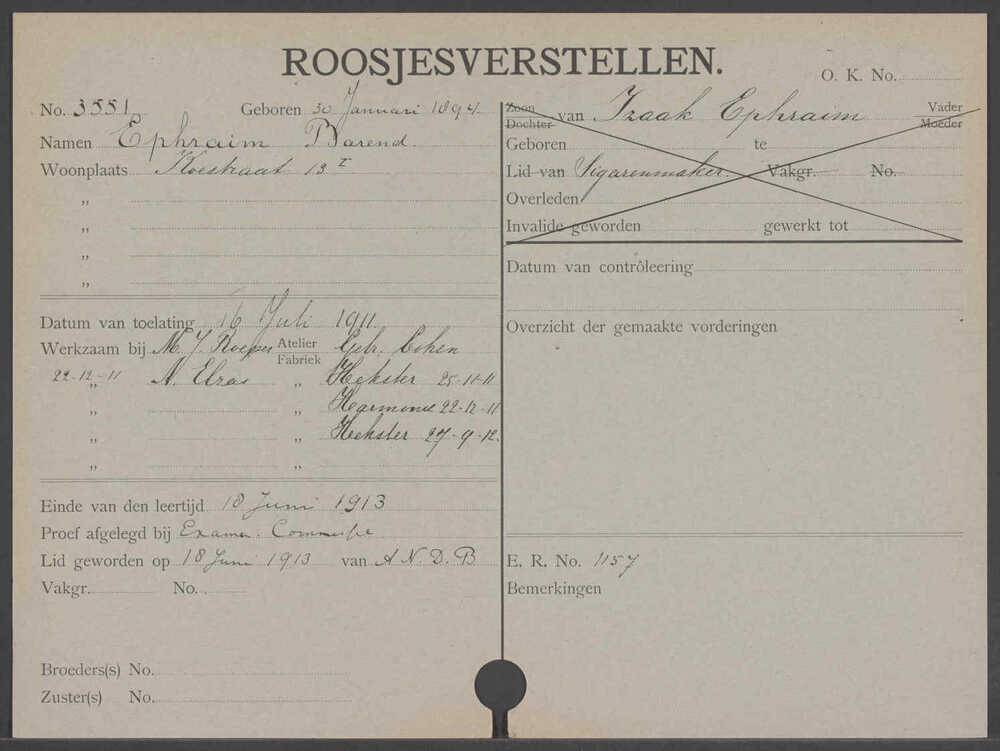 ROOSJESVERSTELLEN.
O. K. No.
No. 3551 Geboren 30 Januari 1894
Namen Ephraim Barend.
Woonplaats Koestraat 13 I
„
„
„
„
Datum van toelating 16 Juli 1911
Werkzaam bij M. J. Roeper Atelier Fabriek Gebr. Cohen
22-12-11 „ A. Elzas „ Hekster 25-10-11
„ „ Harmonie 22-12-11
„ „ Hekster 27-9-12.
„ „
Einde van den leertijd 18 Juni 1913
Proef afgelegd bij Examen Commissie
Lid geworden op 18 Juni 1913 van A. N. D. B
Vakgr. No.
Broeders(s) No.
Zuster(s) No.
Zoon Dochter van Izaak Ephraim Vader Moeder
Geboren te
Lid van Sigarenmaker. Vakgr. No.
Overleden
Invalide geworden gewerkt tot
Datum van contrôleering
Overzicht der gemaakte vorderingen
E. R. No. 1157
Bemerkingen